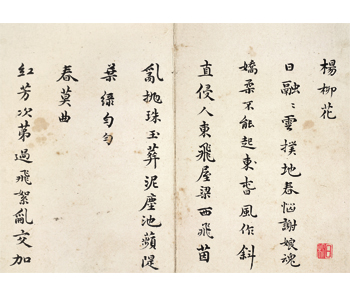 楊柳花
日融〻雲撲地春惱謝娘魂
嬌柔不能起東畨風作斜
直侵人東飛屋梁西飛茵
亂抛珠玉葬泥塵池蘋隄
葉綠勻勻
春莫曲
紅芳次第過飛絮亂交加